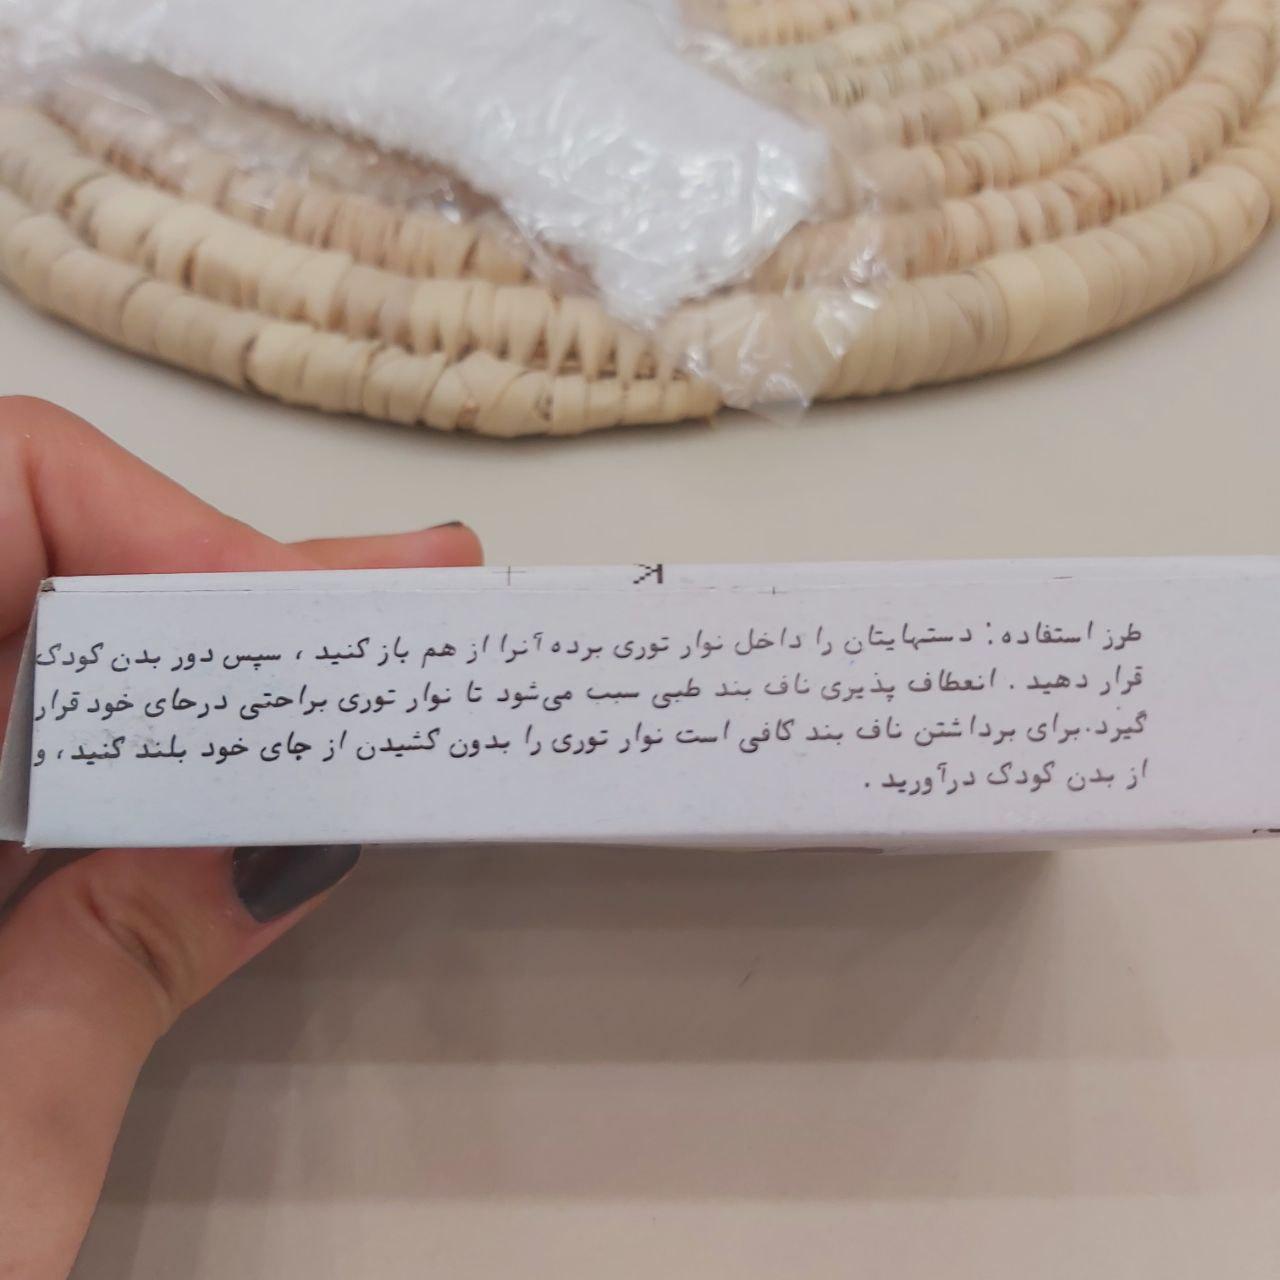 طرز استفاده : دستهایتان را داخل نوار توری برده آنرا از هم باز کنید ، سپس دور بدن کودک
قرار دهید . انعطاف پذیری ناف بند طبی سبب می‌شود تا نوار توری براحتی درحای خود قرار
گیرد.برای برداشتن ناف بند کافی است نوار توری را بدون کشیدن از جای خود بلند کنید ، و
از بدن کودک درآورید .